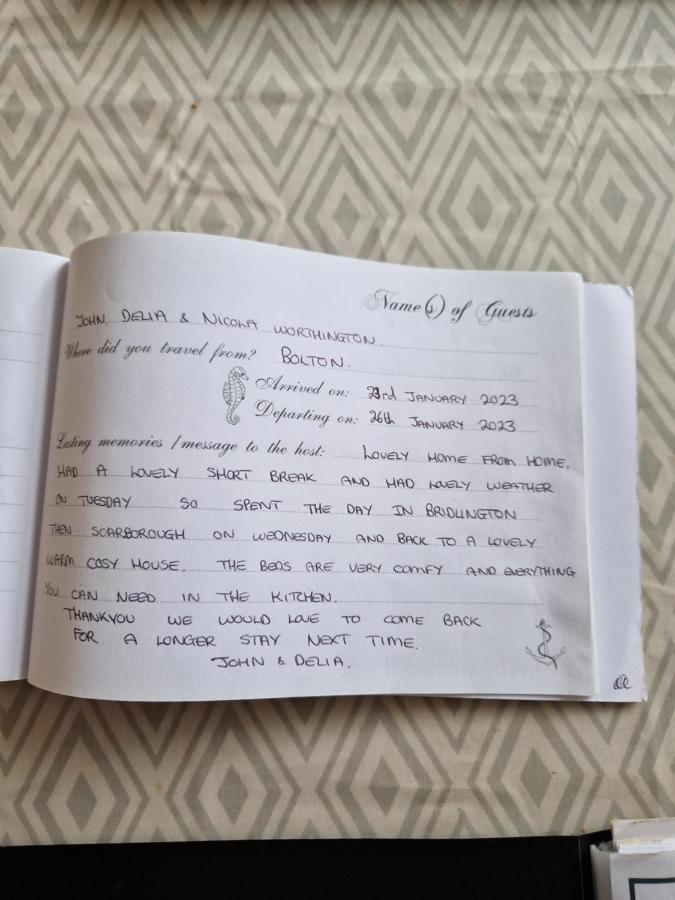 Name(s) of Guests
JOHN, DELIA & NICOLA WORTHINGTON.
Where did you travel from? BOLTON.
Arrived on: 23rd JANUARY 2023
Departing on: 26th JANUARY 2023
Lasting memories / message to the host: LOVELY HOME FROM HOME.
HAD A LOVELY SHORT BREAK AND HAD LOVELY WEATHER
ON TUESDAY SO SPENT THE DAY IN BRIDLINGTON
THEN SCARBOROUGH ON WEDNESDAY AND BACK TO A LOVELY
WARM COSY HOUSE. THE BEDS ARE VERY COMFY AND EVERYTHING
YOU CAN NEED IN THE KITCHEN.
THANKYOU WE WOULD LOVE TO COME BACK
FOR A LONGER STAY NEXT TIME.
JOHN & DELIA.